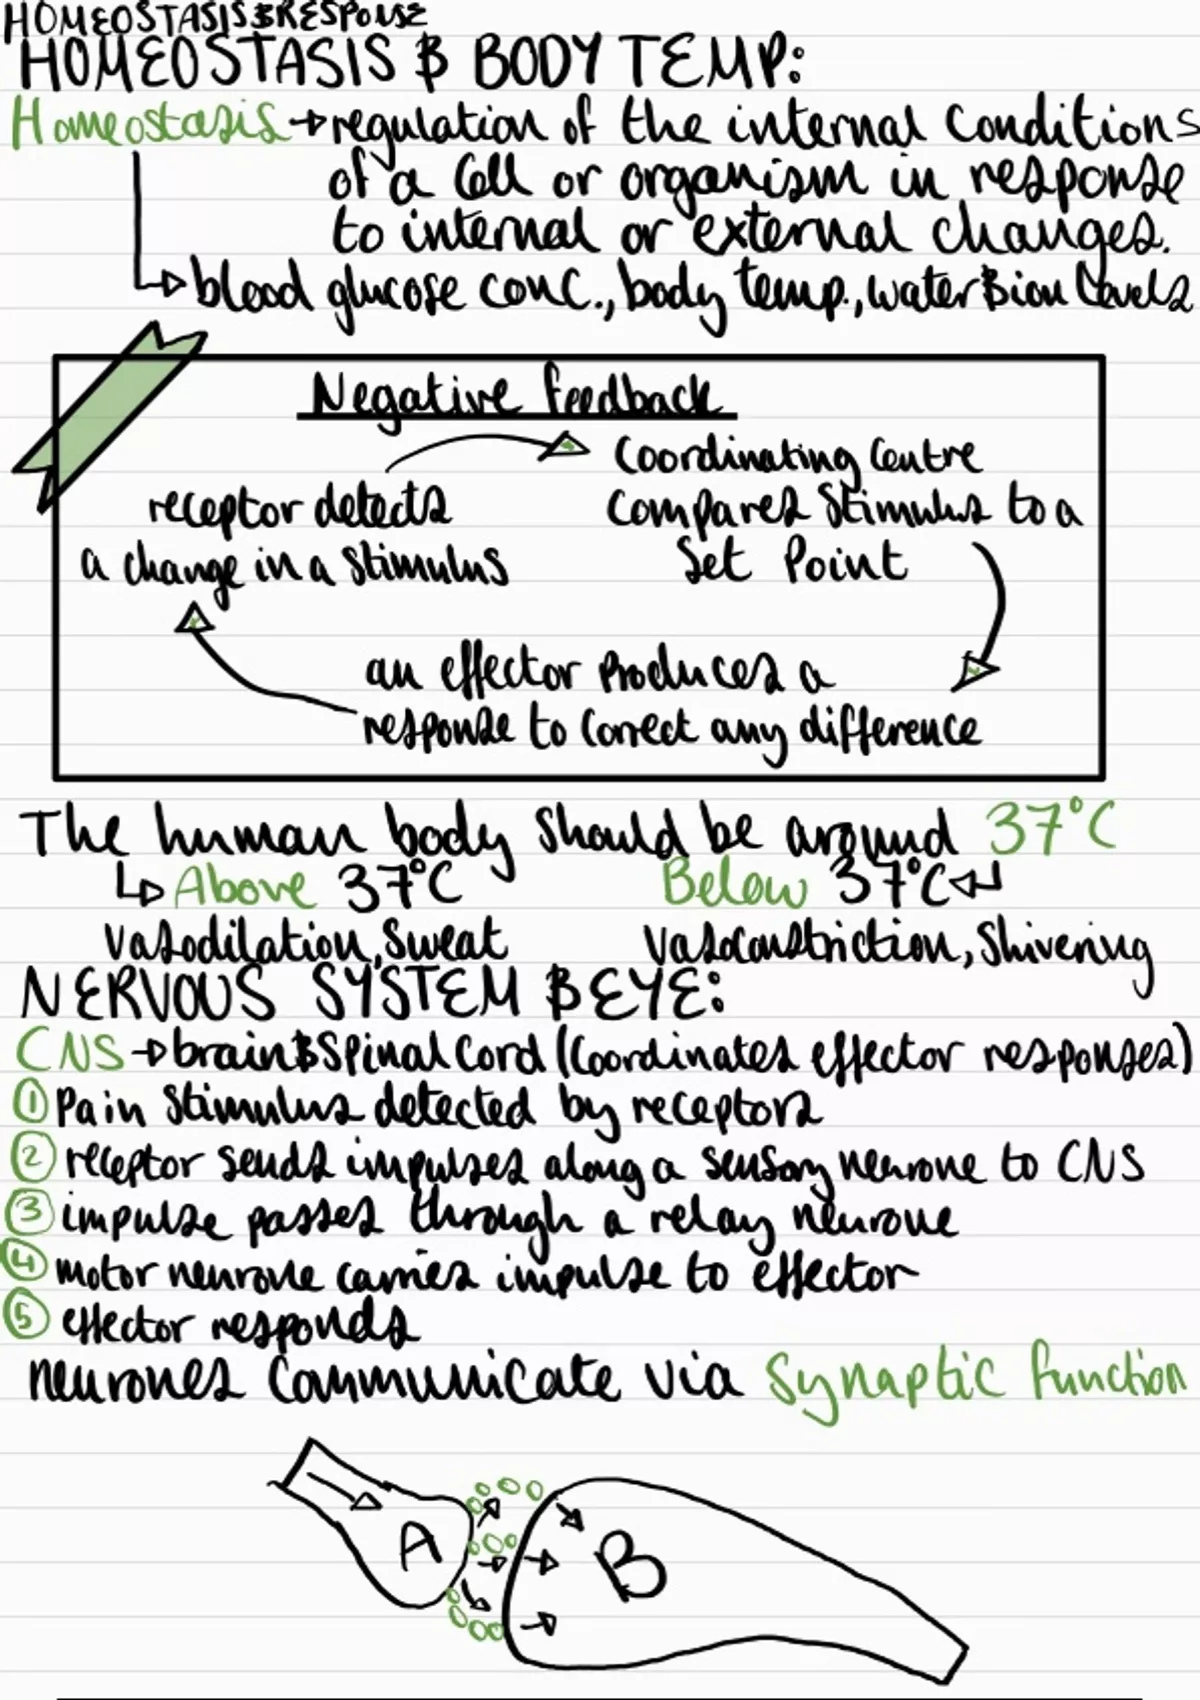 HOMEOSTASIS & RESPONSE
HOMEOSTASIS & BODY TEMP:
Homeostasis → regulation of the internal conditions
of a cell or organism in response
to internal or external changes.
↳ blood glucose conc., body temp., water & ion levels
Negative feedback
Coordinating centre
receptor detects
compares stimulus to a
a change in a stimulus
set point
an effector produces a
response to correct any difference
The human body should be around 37°C
↳ Above 37°C
Below 37°C ↵
vasodilation, sweat
vasoconstriction, shivering
NERVOUS SYSTEM & EYE:
CNS → brain & spinal cord (coordinates effector responses)
① Pain stimulus detected by receptors
② receptor sends impulses along a sensory neurone to CNS
③ impulse passes through a relay neurone
④ motor neurone carries impulse to effector
⑤ effector responds
neurones communicate via synaptic function
A
B